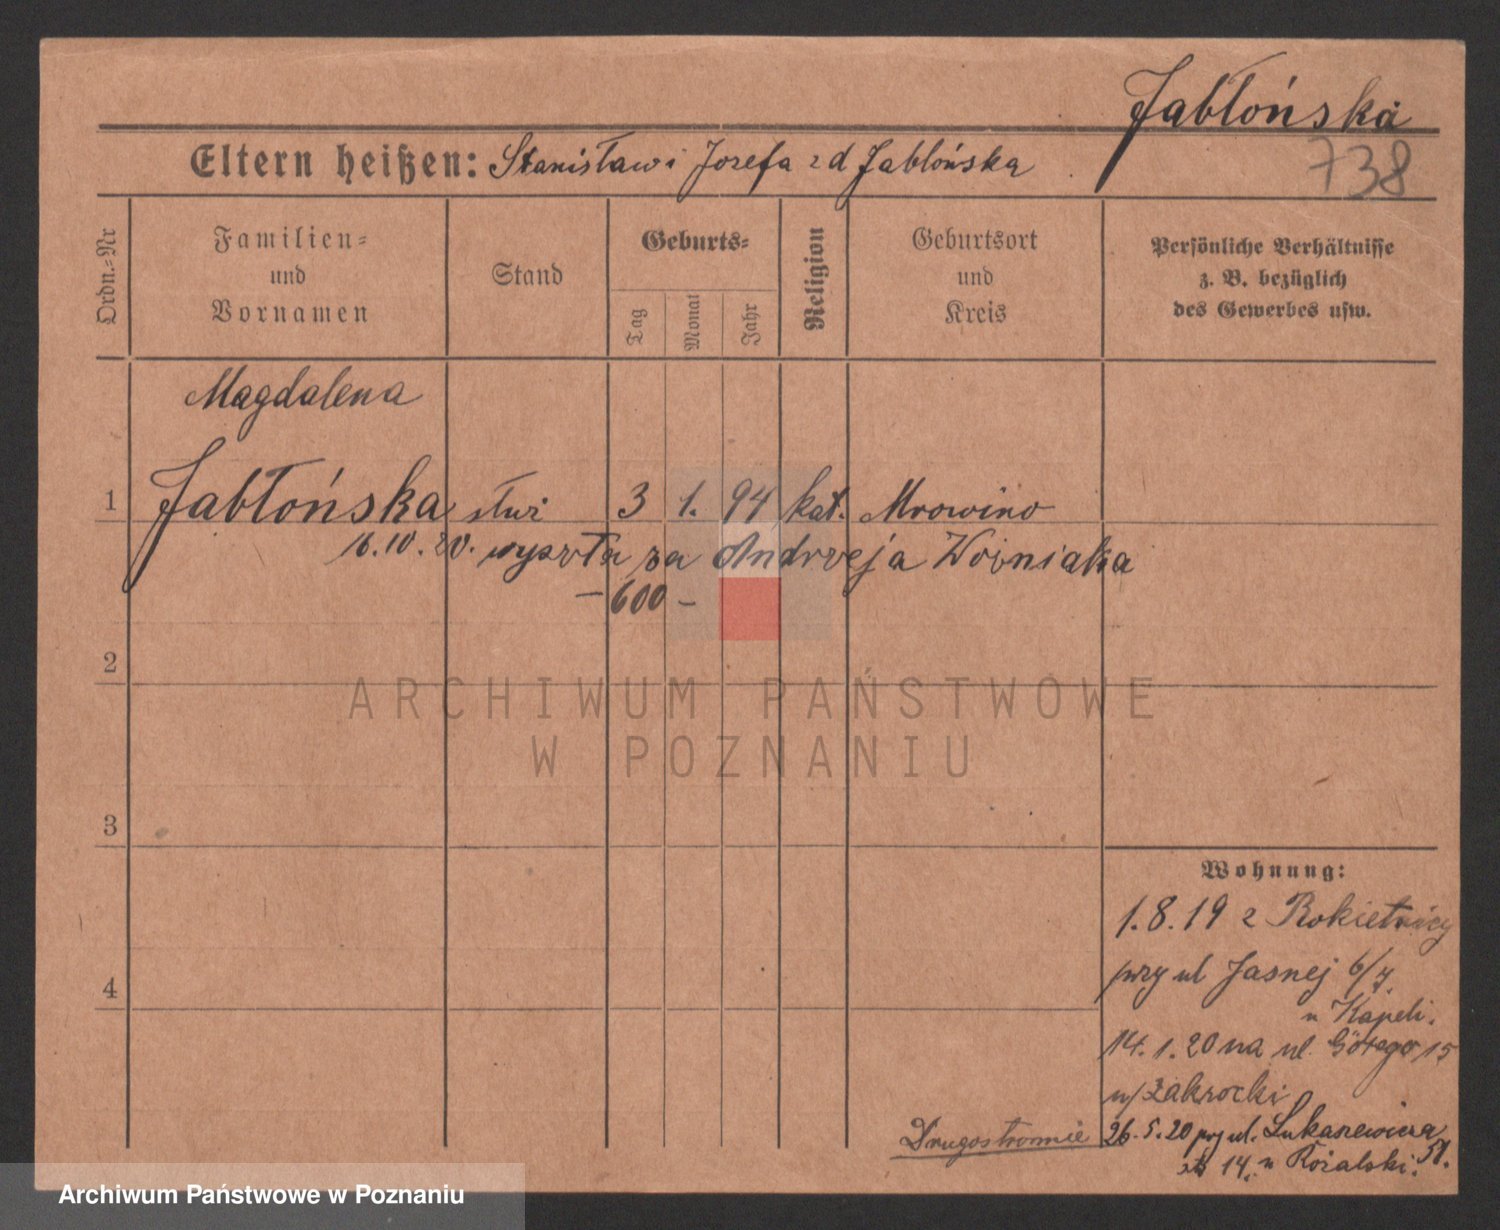 Jabłońska
738
Eltern heißen: Stanisław i Jozefa z d Jabłońska
Ordn.=Nr
Familien=
und
Vornamen
Stand
Geburts=
Tag
Monat
Jahr
Religion
Geburtsort
und
Kreis
Persönliche Verhältnisse
z. B. bezüglich
des Gewerbes usw.
Magdalena
1 Jabłońska służ 3 1. 94 kat. Mrowino
16.10.20. wyszła za Andrzeja Woźniaka
- 600 -
2
ARCHIWUM PAŃSTWOWE
W POZNANIU
3
Wohnung:
1.8.19 z Rokietnicy
4
przy ul Jasnej 6/7.
u Kapeli.
14.1.20 na ul. 15
u/ Zakrocki
Drugostronnie
26.5.20 przy ul. Łukaszewicza 51.
14. u Rożalski.
Archiwum Państwowe w Poznaniu